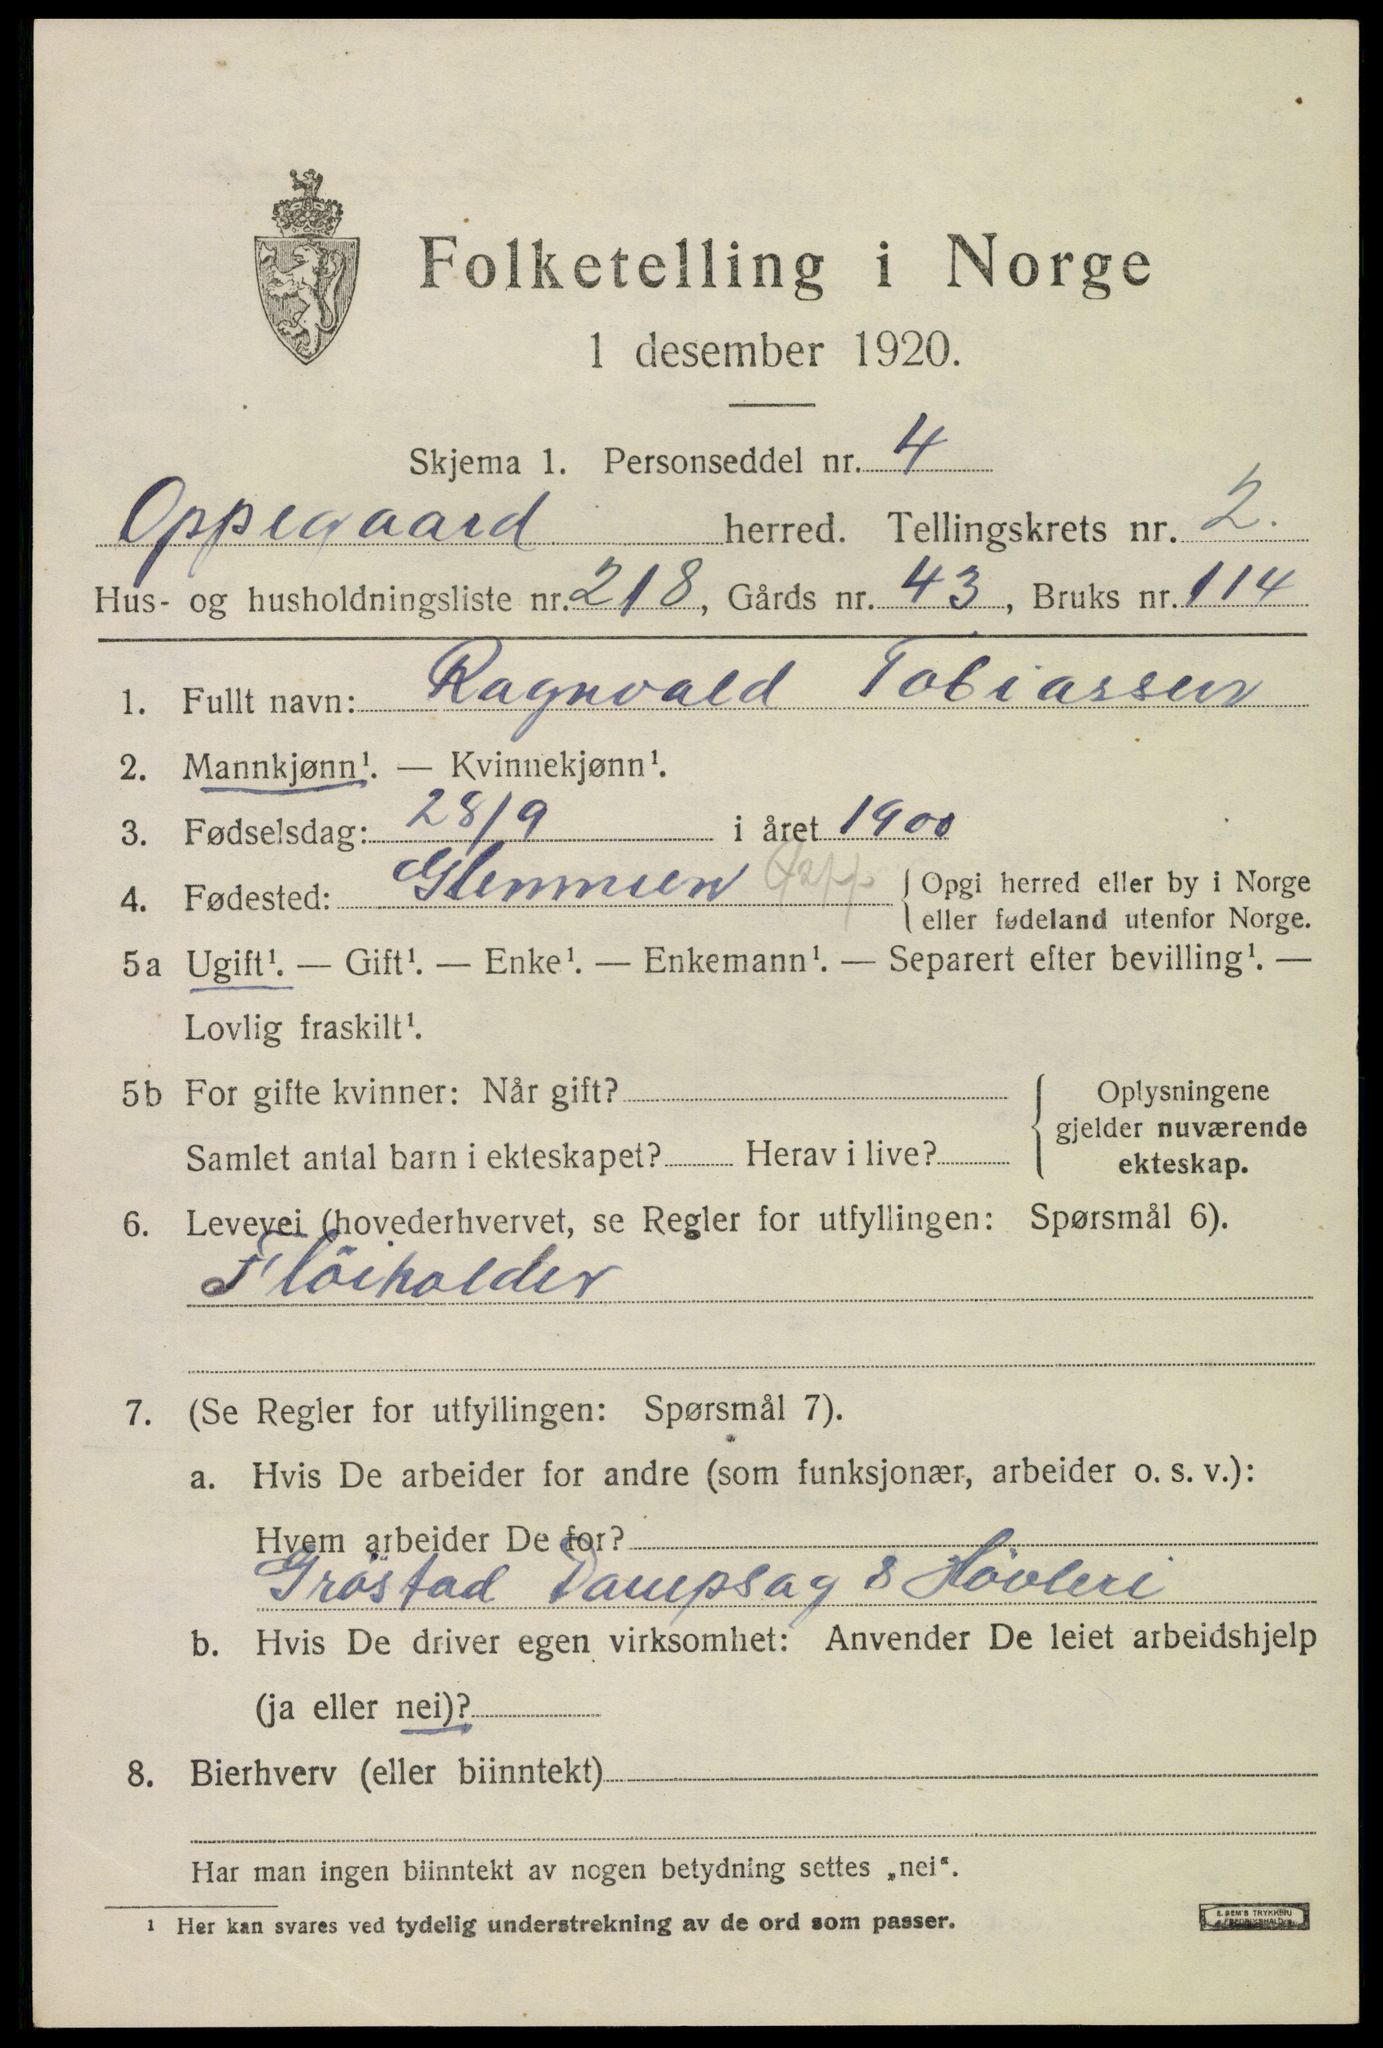 Folketelling i Norge
1 desember 1920.
Skjema 1. Personseddel nr. 4
Oppegaard herred. Tellingskrets nr. 2.
Hus- og husholdningsliste nr. 218, Gårds nr. 43, Bruks nr. 114
1. Fullt navn: Ragnvald Tobiassen
2. Mannkjønn¹. — Kvinnekjønn¹.
3. Fødselsdag: 28/9 i året 1900
4. Fødested: Glemmen { Opgi herred eller by i Norge
eller fødeland utenfor Norge.
5a Ugift¹. — Gift¹. — Enke¹. — Enkemann¹. — Separert efter bevilling¹. —
Lovlig fraskilt¹.
5b For gifte kvinner: Når gift? { Oplysningene
gjelder nuværende
Samlet antal barn i ekteskapet? Herav i live?
ekteskap.
6. Levevei (hovederhvervet, se Regler for utfyllingen: Spørsmål 6).
Flöiholder
7. (Se Regler for utfyllingen: Spørsmål 7).
a. Hvis De arbeider for andre (som funksjonær, arbeider o. s. v.):
Hvem arbeider De for?
Gröstad Dampsag & Hövleri
b. Hvis De driver egen virksomhet: Anvender De leiet arbeidshjelp
(ja eller nei)?
8. Bierhverv (eller biinntekt)
Har man ingen biinntekt av nogen betydning settes „nei“.
¹ Her kan svares ved tydelig understrekning av de ord som passer.
E. SEM'S TRYKKERI
FREDRIKSHALD